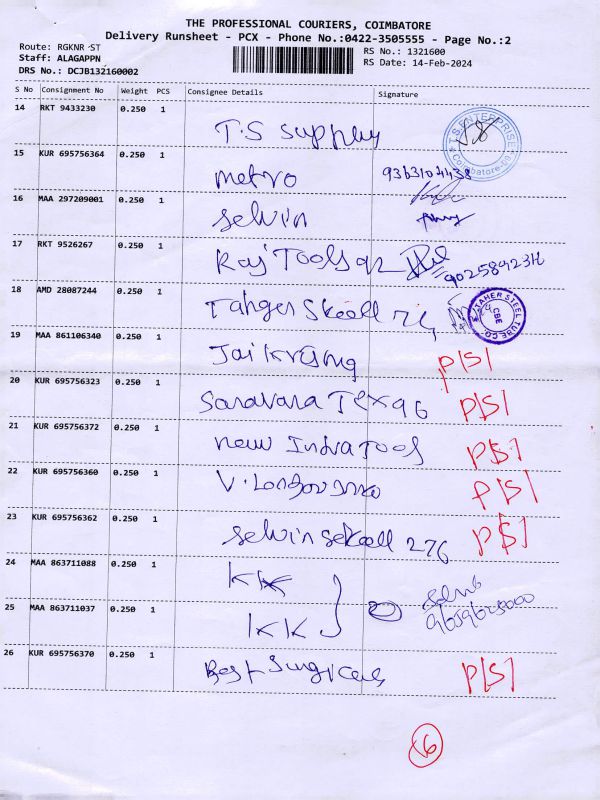 THE PROFESSIONAL COURIERS, COIMBATORE
Delivery Runsheet - PCX - Phone No.:0422-3505555 - Page No.:2
Route: RGKNR ST
RS No.: 1321600
Staff: ALAGAPPN
RS Date: 14-Feb-2024
DRS No.: DCJB132160002
S No Consignment No Weight PCS Consignee Details Signature
14 RKT 9433230 0.250 1
T.S Supply
T.S ENTERPRISE
Coimbatore-
15 KUR 695756364 0.250 1
metro 9363104438
16 MAA 297209001 0.250 1
Selvin
17 RKT 9526267 0.250 1
Raj Tools 92
18 AMD 28087244 0.250 1
TAHER STEEL TUBE CO.
CBE
19 MAA 861106340 0.250 1
P/S/
20 KUR 695756323 0.250 1
Saravara Tex 96 P/S/
21 KUR 695756372 0.250 1
new Indra Tools P/S/
22 KUR 695756360 0.250 1
P/S/
23 KUR 695756362 0.250 1
Selvin 276 P/S/
24 MAA 863711088 0.250 1
KK
25 MAA 863711037 0.250 1
KK
26 KUR 695756370 0.250 1
Best Surgicals P/S/
6